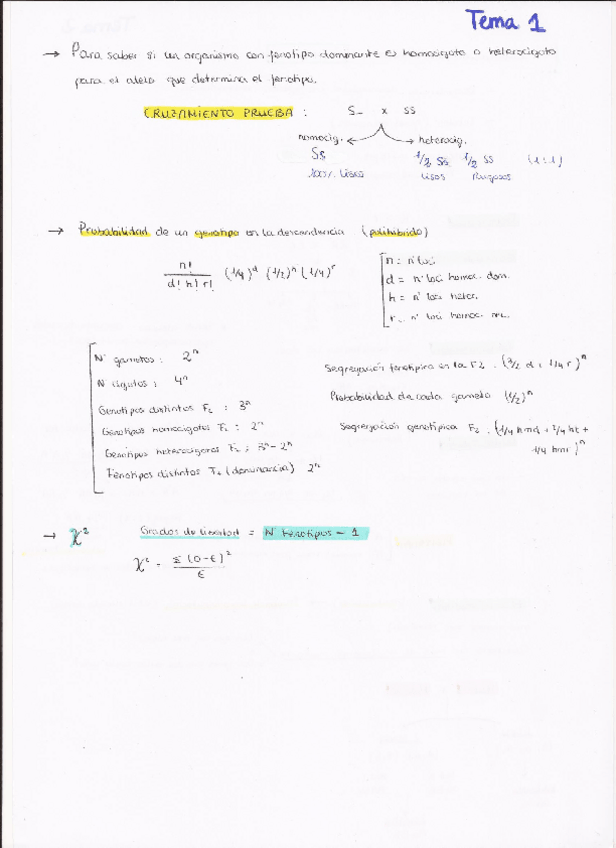 Tema 1
→ Para saber si un organismo con fenotipo dominante es homocigoto o heterocigoto
para el alelo que determina el fenotipo.
CRUZAMIENTO PRUEBA : S_ x ss
homocig. heterocig.
Ss 1/2 Ss 1/2 ss (1:1)
100% lisos lisos Rugosos
→ Probabilidad de un genotipo en la descendencia (polihíbrido)
n! / d! h! r! (1/4)^d (1/2)^h (1/4)^r
n = nº loci
d = nº loci homoc. dom.
h = nº loci heter.
r = nº loci homoc. rec.
Nº gametos : 2^n
Nº cigotos : 4^n
Genotipos distintos F2 : 3^n
Genotipos homocigotos F2 : 2^n
Genotipos heterocigotos F2 : 3^n - 2^n
Fenotipos distintos F2 (dominancia) 2^n
Segregación fenotípica en la F2 . (3/2 d + 1/4 r)^n
Probabilidad de cada gameto (1/2)^n
Segregación genotípica F2 . (1/4 hmd + 2/4 ht +
1/4 hmr)^n
→ χ² Grados de libertad = Nº fenotipos - 1
χ² = Σ (O-E)² / E